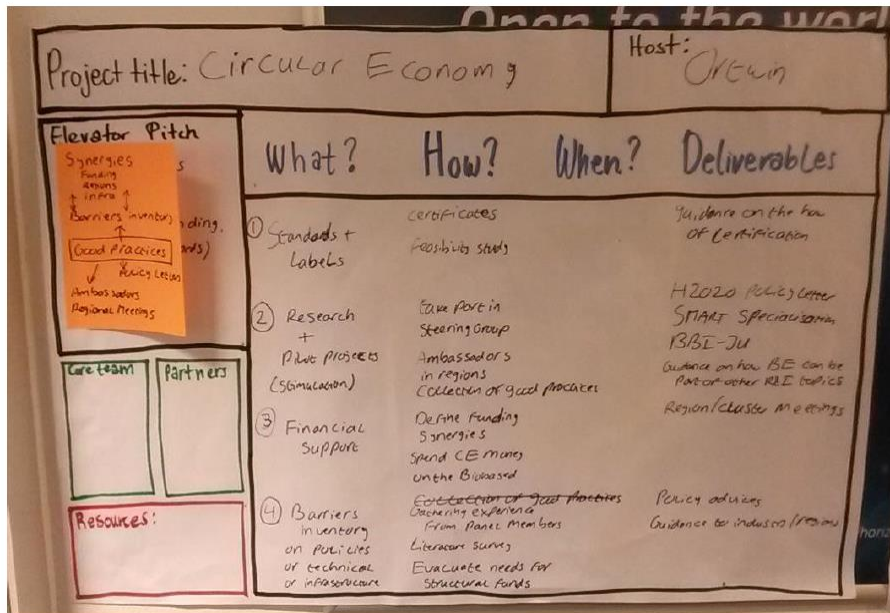 Open to the worl
Project title: Circular Economy
Host:
Ortwin
Elevator Pitch
Synergies
Funding
Regions
infra
Barriers inventory
Good Practices
Policy Letters
Ambassadors
Regional Meetings
s
nding,
nds)
Core team
Partners
Resources:
What? How? When? Deliverables
① Standards +
Labels
certificates
Feasibility study
guidance on the how
of certification
② Research
+
Pilot Projects
(Stimulation)
take part in
Steering Group
Ambassadors
in regions
Collection of good practices
H2020 Policy letter
SMART Specialisation
BBI-JU
Guidance on how BE can be
Part of other R&I topics
Region/cluster Meetings
③ Financial
Support
Define Funding
Synergies
Spend CE money
on the Biobased
④ Barriers
inventory
on policies
or technical
or infrastructure
Collection of good practices
Gathering experience
From Panel Members
Literature survey
Evaluate needs for
Structural Funds
Policy advices
Guidance to industry/region
horiz